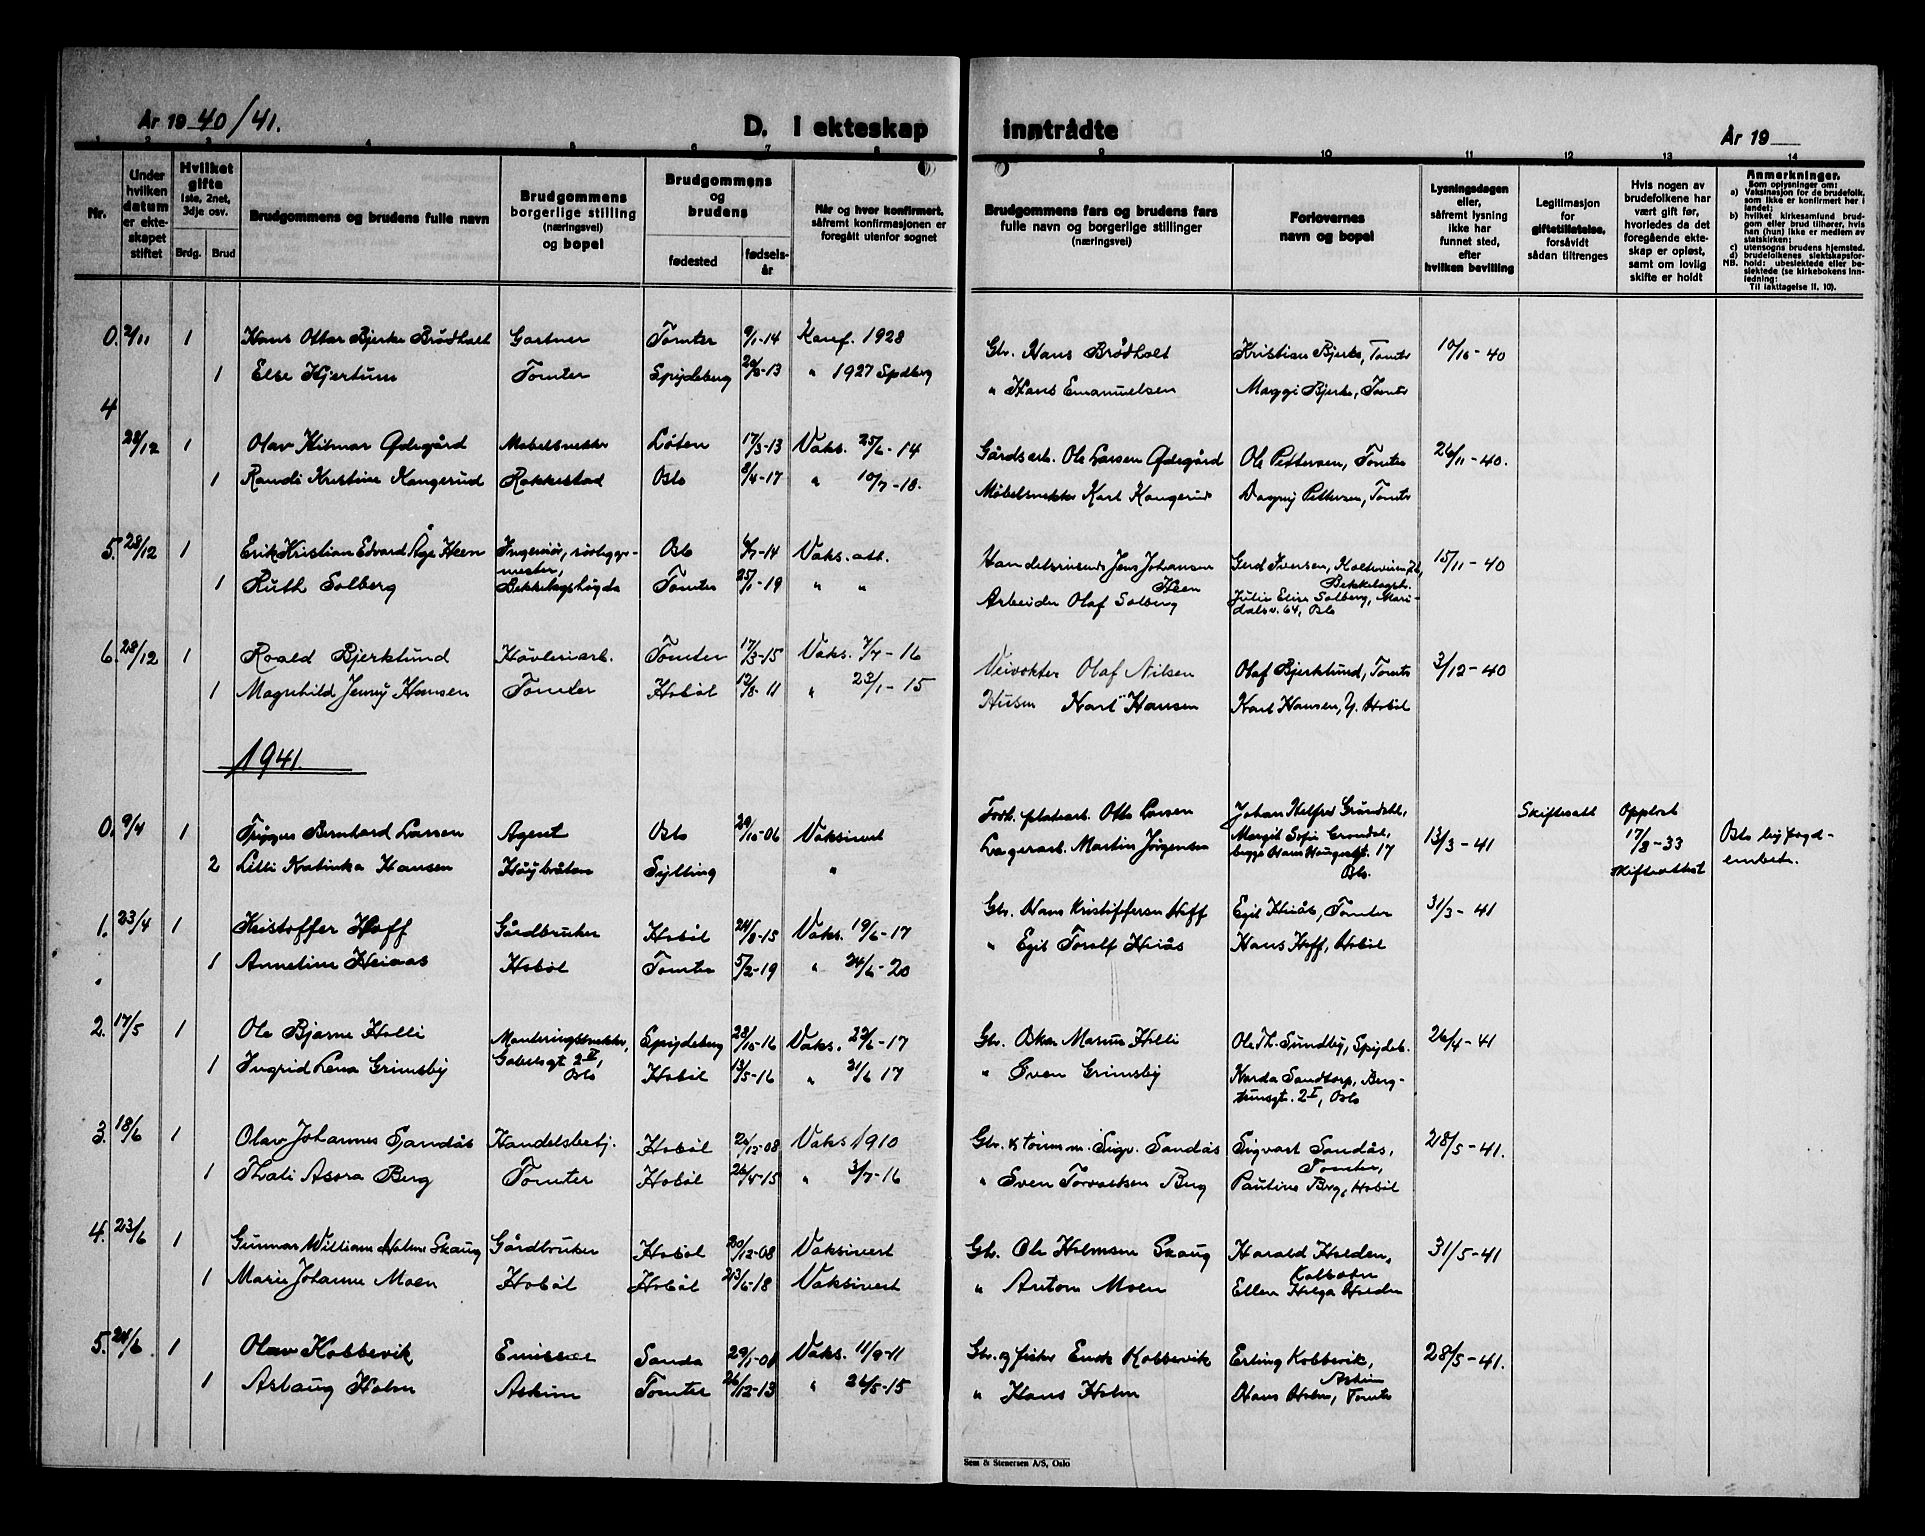 År 1940/41.
D. I ekteskap inntrådte
År 19
1 2 3 4 5 6 7 8 9 10 11 12 13 14
Nr.
Under hvilken datum er ekteskapet stiftet
Hvilket gifte 1ste, 2net, 3dje osv.
Brdg. Brud
Brudgommens og brudens fulle navn
Brudgommens borgerlige stilling (næringsvei) og bopel
Brudgommens og brudens
fødested
fødselsår
Når og hvor konfirmert, såfremt konfirmasjonen er foregått utenfor sognet
Brudgommens fars og brudens fars fulle navn og borgerlige stillinger (næringsvei)
Forlovernes navn og bopel
Lysningsdagen eller, såfremt lysning ikke har funnet sted, efter hvilken bevilling
Legitimasjon for giftetillatelse, forsåvidt sådan tiltrenges
Hvis nogen av brudefolkene har vært gift før, hvorledes da det foregående ekteskap er opløst, samt om lovlig skifte er holdt
Anmerkninger.
Som oplysninger om:
a) Vaksinasjon for de brudefolk, som ikke er konfirmert her i landet;
b) hvilket kirkesamfund brudgom eller brud tilhører, hvis han (hun) ikke er medlem av statskirken;
c) utensogns brudens hjemsted.
d) brudefolkenes slektskapsforhold: ubeslektede eller beslektede (se kirkebokens innledning:
NB. Til iakttagelse II. 10).
0. 2/11 1 Hans Ottar Bjerke Brødholt Gartner Tomter 9/1-14 Konf. 1928 Gbr. Hans Brødholt Kristian Bjerke, Tomter 10/10-40
1 Else Hjertum Tomter Spydeberg 20/5-13 " 1927 Spdberg " Hans Emanuelsen Maggi Bjerke, Tomter
4
28/12 1 Olav Hilmar Ødegård Møbelsnekker Løten 17/3-13 Vaks. 25/6-14 Gårdsarb. Ole Larsen Ødegård Ole Pettersen, Tomter 26/11-40.
1 Randi Kristine Haugerud Rakkestad Oslo 8/4-17 " 10/7-18. Møbelsnekker Karl Haugerud Dagny Pettersen, Tomter
5. 28/12 1 Erik Kristian Edvard Åge Heen Ingeniør, rørleggermester, Oslo 4/7-14 Vaks. att. Handelsreisende Jens Johansen Heen Gerd Iversen, Bekkelagsh. 15/11-40
1 Ruth Solberg Bekkelagshøgda Tomter 25/1-19 " " Arbeider Olaf Solberg Julie Elise Solberg, Maridalsv. 64, Oslo
6. 28/12 1 Roald Bjerklund Høvleriarb. Tomter 17/3-15 Vaks. 7/7-16 Veivokter Olaf Nilsen Olaf Bjerklund, Tomter 3/12-40
1 Magnhild Jenny Hansen Tomter Hobøl 12/8-11 " 23/1-15 Karl Hansen Karl Hansen, Y. Hobøl
1941.
0. 9/4 1 Trygve Bernhard Larsen Agent Oslo 29/10-06 Vaksinert Otto Larsen Johan Helfred Grøndahl, 13/3-41 Skifteatt Oppløst 17/3-33 Oslo byfogdembete.
2 Lilli Katinka Hansen Høybråten Sylling " Lagerarb. Martin Jørgensen Margit Sofie Grøndal, begge Hans Haugesgt. 17 Oslo. skifteattest
1. 23/4 1 Kristoffer Hoff Gårdbruker Hobøl 24/8-15 Vaks. 19/6-17 Gbr. Hans Kristiffersen Hoff Egil Heiås, Tomter 31/3-41
1 Anneline Heiaas Hobøl Tomter 5/2-19 " 24/6-20 " Egil Toralf Heiås Hans Hoff, Hobøl
2. 17/5 1 Ole Bjarne Holli Monteringssnekker, Spydeberg 28/10-16 Vaks. 29/6-17 Gbr. Oskar Marius Holli Ole Th. Sundby, Spydeb. 26/4-41
1 Ingrid Lena Grimsby Gabelsgt 2 II, Oslo Hobøl 13/5-16 " 21/6 17 " Sven Grimsby Sandtorp, Oslo
3. 18/6 1 Olav Johannes Sandås Handelsbetj. Hobøl 24/12-08 Vaks 1910 Gbr. & tømm. Sigv. Sandås Sigvart Sandås, Tomter, 28/5-41.
1 Thali Asora Berg Tomter Hobøl 26/4-15 " 3/7-16 " Sven Torvaldsen Berg Pauline Berg, Hobøl
4. 23/6 1 Gunnar William Holme Skaug Gårdbruker Hobøl 20/12-08 Vaksinert Gbr. Ole Holmsen Skaug Harald Holden, Kolbotn 31/5-41
1 Marie Johanne Moen Hobøl Hobøl 23/6-18 Vaksinert " Anton Moen Ellen Helga Holden
5. 24/6 1 Olav Kobbevik Emissær Sanda 29/1-08 Vaks. 11/9-11 Gbr. og fisker Kobbevik Erling Kobbevik, Askim 28/5-41.
1 Aslaug Holm Askim Tomter 26/12-13 " 26/5-15 " Hans Holm Hans Holm, Tomter
Sem & Stenersen A/S, Oslo